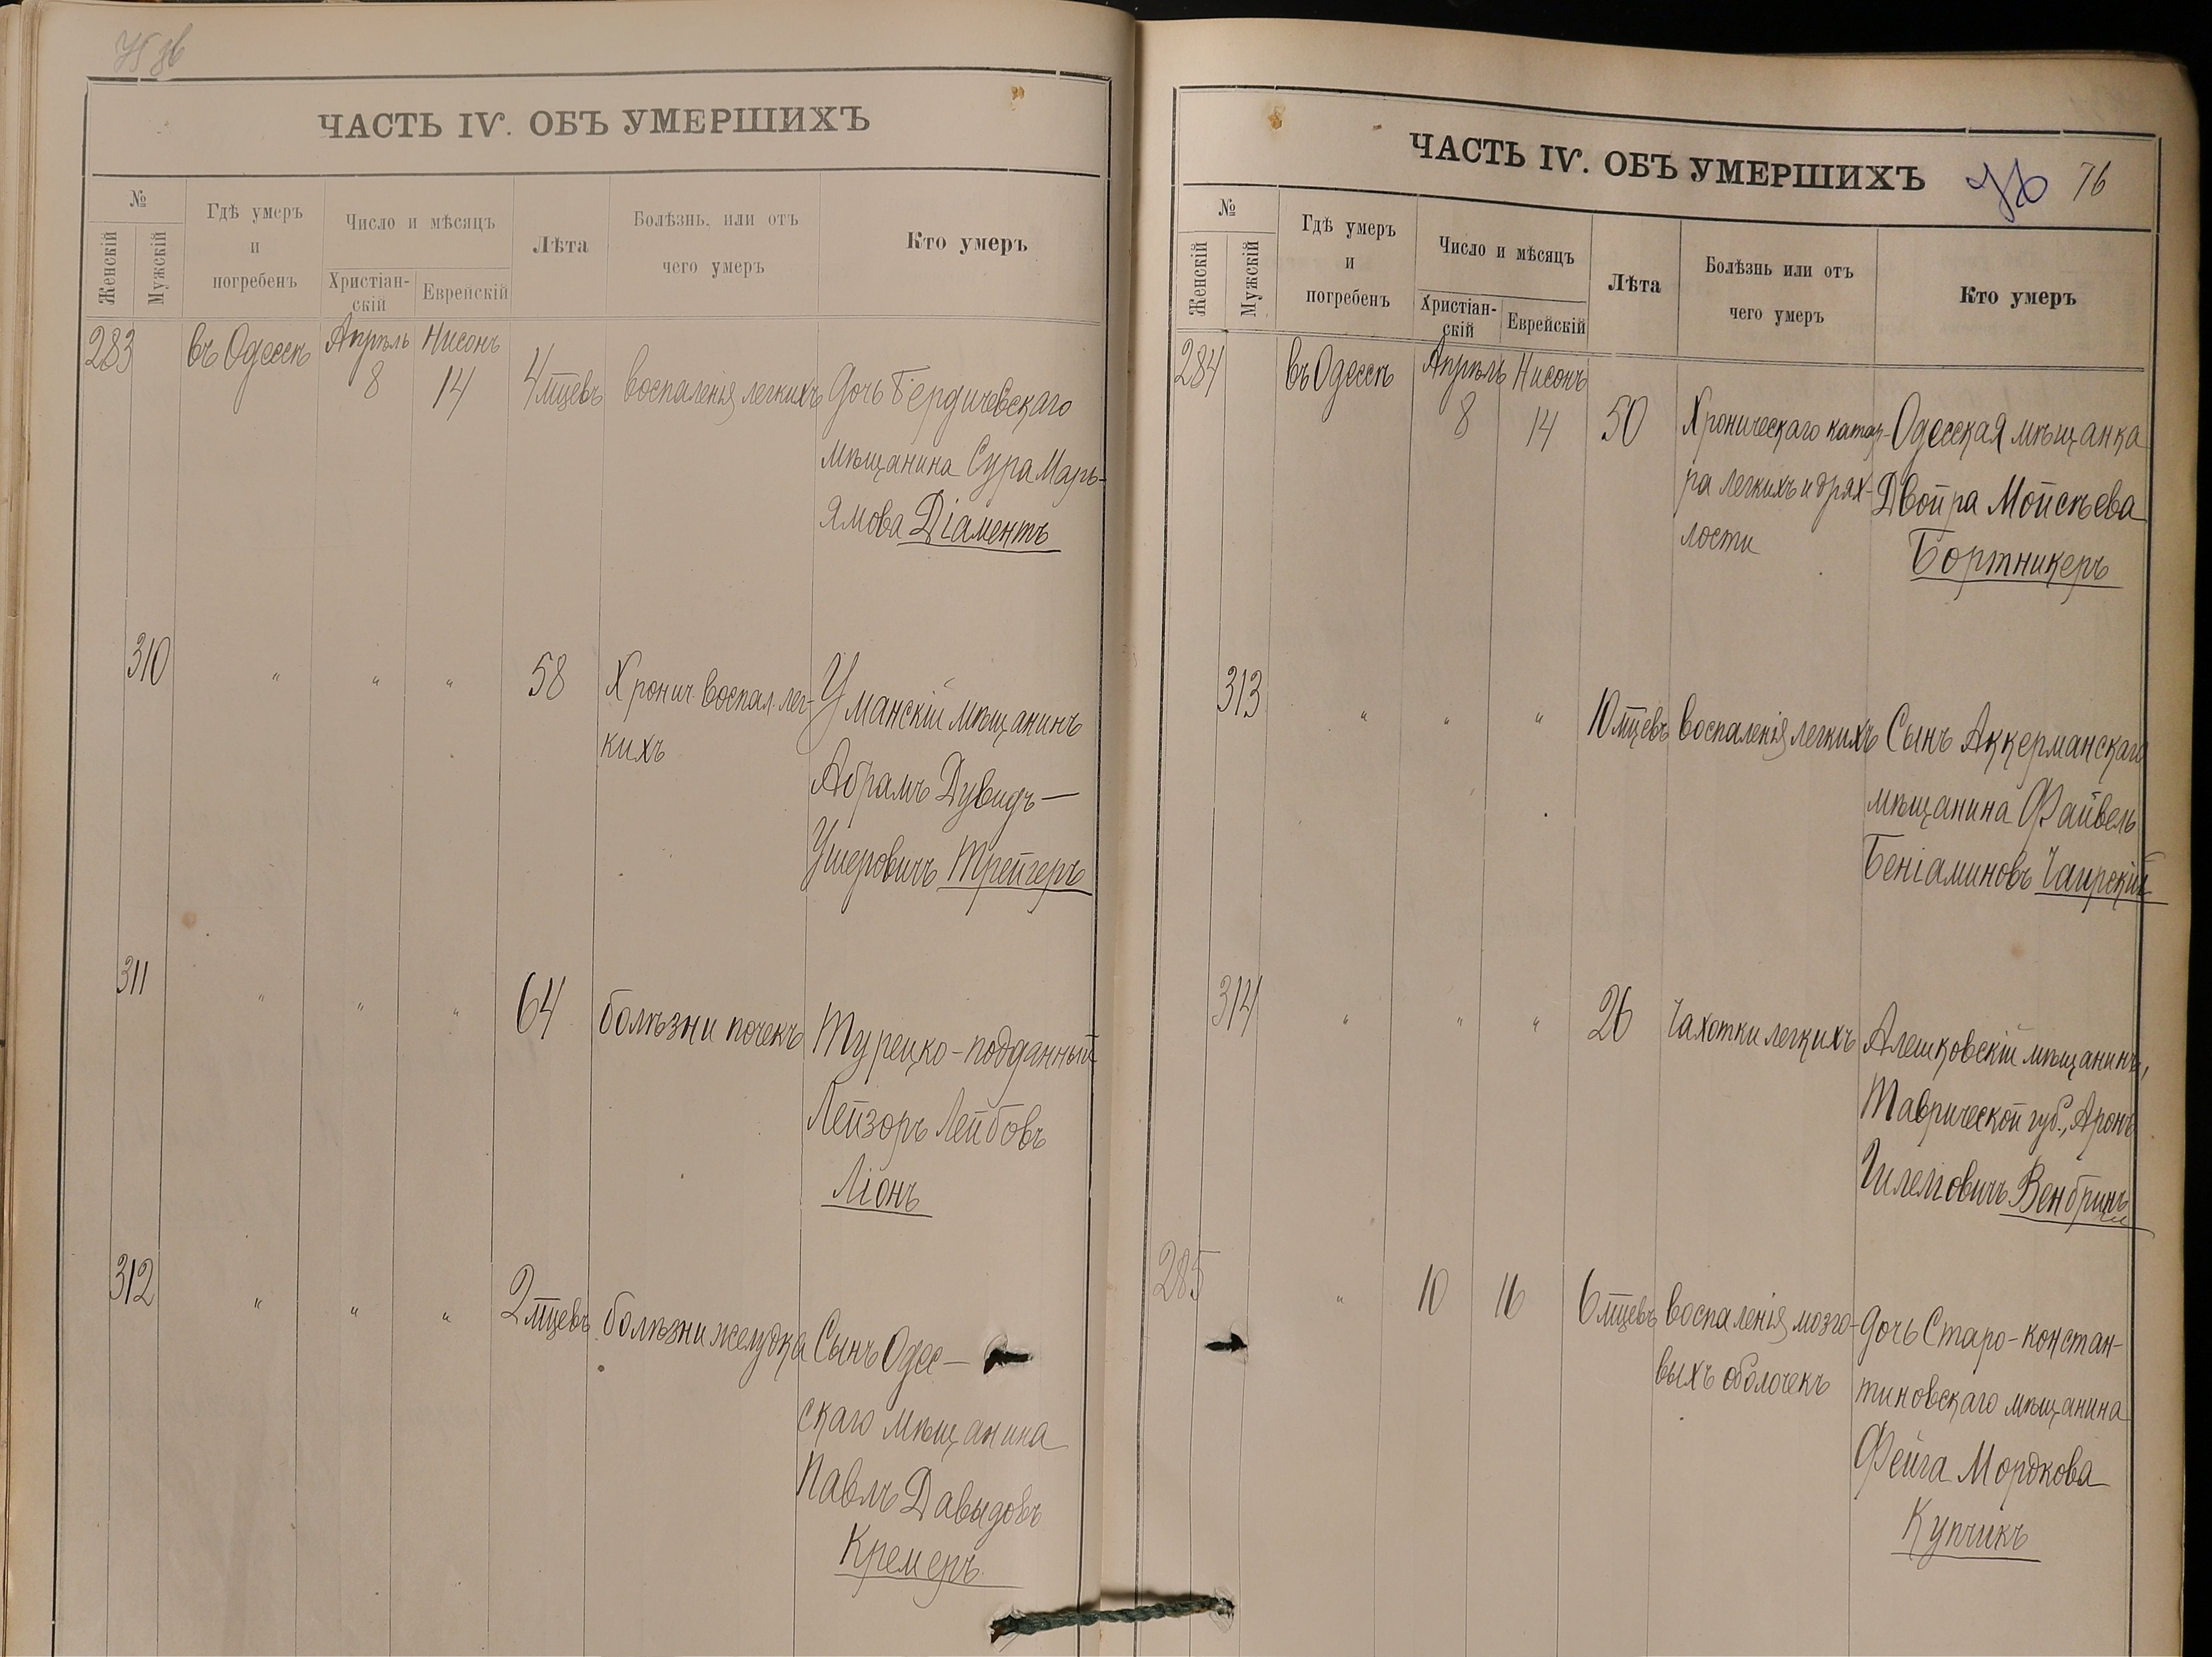 ЧАСТЬ IV. ОБЪ УМЕРШИХЪ
№
Женскій
Мужскій
Гдѣ умеръ
и
погребенъ
Число и мѣсяцъ
Христіан-
скій
Еврейскій
Лѣта
Болѣзнь, или отъ
чего умеръ
Кто умеръ
283 въ Одессѣ Апрѣль Нисонъ
8 14 4 мцевъ воспаленія легкихъ Дочь Бердичевскаго
мѣщанина Сура Марь-
ямова Діаментъ
310 " " " 58 Хронич. воспал. лег- Уманскій мѣщанинъ
кихъ
Абрамъ Дувидъ —
Ушеровичъ Трейгеръ
311 " " " 64 болѣзни почекъ Турецко-подданный
Лейзоръ Лейбовъ
Ліонъ
312 " " " 2 мцевъ болѣзни желудка Сынъ Одес-
скаго мѣщанина
Павлъ Давыдовъ
Кремеръ
ЧАСТЬ IV. ОБЪ УМЕРШИХЪ 76
№
Женскій
Мужскій
Гдѣ умеръ
и
погребенъ
Число и мѣсяцъ
Христіан-
скій
Еврейскій
Лѣта
Болѣзнь или отъ
чего умеръ
Кто умеръ
284 въ Одессѣ Апрѣль Нисонъ
8 14 50 Хроническаго катар- Одесская мѣщанка
ра легкихъ и дрях- Двойра Мойсѣева
лости Бортникеръ
313 " " " 10 мцевъ воспаленія легкихъ Сынъ Аккерманскаго
мѣщанина Файвель
Беніаминовъ Чаирскій
314 " " " 26 Чахотки легкихъ Алешковскій мѣщанинъ,
Таврической губ., Аронъ
Шлемовичъ Венбринъ
285 " 10 16 6 мцевъ воспаленія мозго- Дочь Старо-констан-
выхъ оболочекъ тиновскаго мѣщанина
Фейга Мордкова
Купчикъ